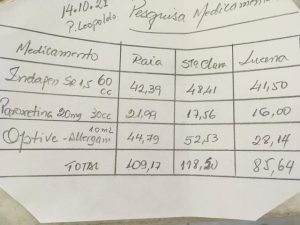 14.10.21
P. Leopoldo
Pesquisa Medicament
Medicamento Raia Sta Clara Lucena
Indapen SR 1,5 60 cc 42,39 48,41 41,50
Paroxetina 20mg 30cc 21,99 17,56 16,00
Optive - Allergan 10mL 44,79 52,53 28,14
TOTAL 109,17 118,50 85,64